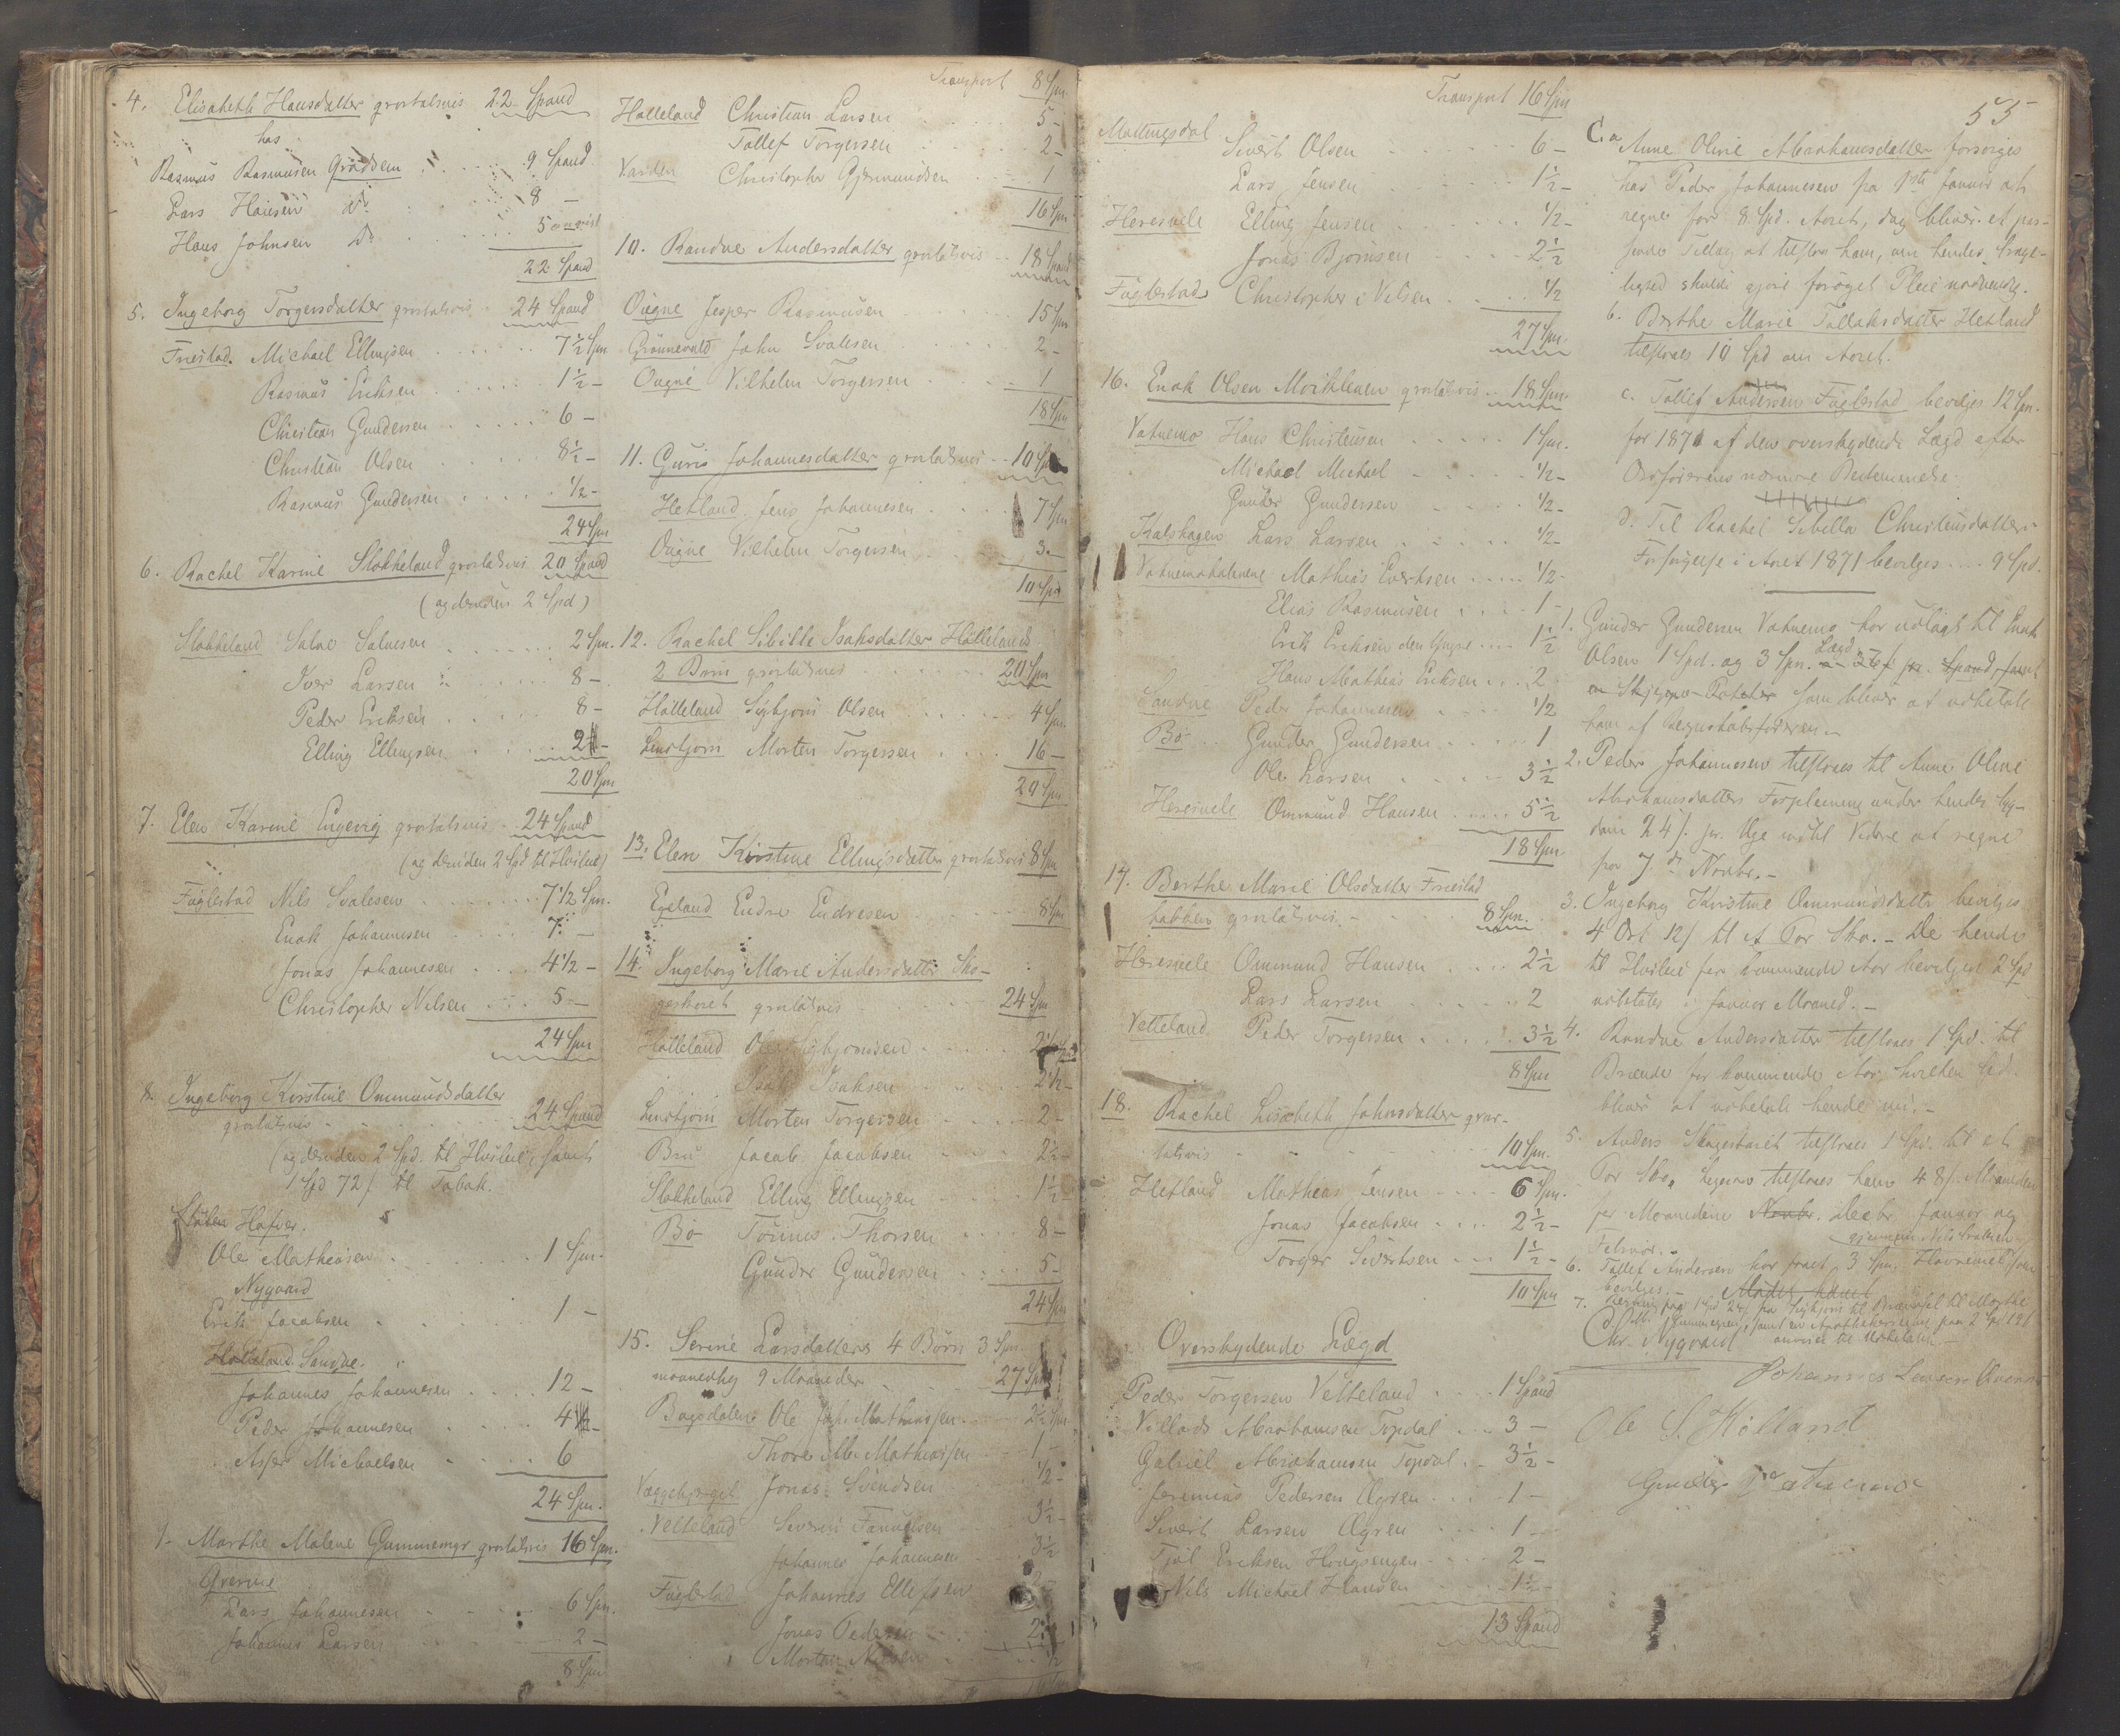 4. Elisabeth Hansdatter qvartalsvis 22 Spand
hos
Rasmus Rasmusen Grødem 9 Spand
Lars Hansen do 8 —
Hans Johnsen do 5
22 Spand
5. Ingeborg Torgersdatter qvartalsvis 24 Spand
Friestad. Michael Ellingsen 7½ Spn
Rasmus Eriksen 1½ —
Christian Gundersen 6 —
Christian Olsen 8½ —
Rasmus Gundersen ½ —
24 Spn
6. Rachel Karine Slokkeland qvartalsvis 20 Spand
(og desuden 2 Spd)
Slokkeland Salve Salvesen 2 Spn.
Iver Larsen 8 —
Peder Eriksen 8 —
Elling Ellingsen 2 —
20 Spn
7. Elen Karine Engevig qvartalsvis 24 Spand
(og desuden 2 Spd til Huusleie)
Fuglestad Nils Svalesen 7½ Spn.
Enok Johannesen 7 —
Jonas Johannesen 4½ —
Christopher Nilsen 5 —
24 Spn
8. Ingeborg Kirstine Ommundsdatter
qvartalsvis 24 Spand
(og desuden 2 Spd. til Huusleie, samt
1 Spd 72 / til Tobak.
Hafver.
Ole Mathiasen 1 Spn.
Nygaard
Erik Jacobsen 1 —
Sandve.
Johannes Johannesen 12 —
Peder Johannesen 4 —
Asser Michaelsen 6
24 Spn.
Marthe Malene Gummemyr qvartalsvis 16 Spn.
Qverme
Lars Johannesen 6 Spn.
Johannes Larsen 2 —
8 Spn
Transport 8 Spn
Holleland Christian Larsen 5 —
Tollef Torgersen 2 —
Varden Christopher Gjermundsen 1
16 Spn
10. Randve Andersdatter qvartalsvis 18 Spand
Ougne Jesper Rasmusen 15 Spn
Grønnevold John Svalesen 2 —
Ougne Vilhelm Torgersen 1
18 Spn
11. Guri Johannesdatter qvartalsvis 10 Spn
Hetland Jens Johannesen 7 Spn
Ougne Vilhelm Torgersen 3 —
10 Spn
12. Rachel Sibille Isaksdatter Hollelands
2 Børn qvartalsvis 20 Spn
Holleland Sigbjørn Olsen 4 Spn.
Linstjørn Morten Torgersen 16 —
20 Spn
13. Elen Kirstine Ellingsdatter qvartalsvis 8 Spn
Egeland Endre Endresen 8 Spn
14. Ingeborg Marie Andersdatter Ska-
gestaret qvartalsvis 24 Spn
Holleland Ole Sigbjørnsen 2½
Isak Isaksen 2½ —
Linstjørn Morten Torgersen 2 —
Bru Jacob Jacobsen 2½ —
Slokkeland Elling Ellingsen 1½ —
Bø Tønnes Thorsen 8 —
Gunder Gundersen 5 —
24 Spn
15. Serine Larsdatters 4 Børn 3 Spn.
maanedlig 9 Maaneder 27 Spn
Bugsdalen Ole Joh. Mathiassen 2½ Spn
Thore M. Mathiassen 1 —
Jonas Svendsen ½ —
Velteland Severin 3½ —
Johannes Johannesen 3½
Fuglestad Johannes Ellefsen
Jonas Pedersen 2
Morten Nilsen ½
Transport 16 Spn
Mattingsdal Sivert Olsen 6 —
Lars Jensen 1½ —
Heresvele Elling Jensen ½ —
Jonas Bjørnsen 2½
Fuglestad Christopher Nilsen ½
27 Spn.
16. Enok Olsen qvartalsvis 18 Spn.
Vatnemo Hans Christensen 1 Spn.
Michael Michael ½ —
Gunder Gundersen ½ —
Kalskagen Lars Larsen ½ —
Mathias Evertsen ½ —
Elias Rasmusen 1 —
Erik Eriksen den Yngre 1½
Hans Mathias Eriksen 2
Sandve Peder Johannesen ½
Bø Gunder Gundersen 1
Ole Larsen 3½
Heresvele Ommund Hansen 5½
18 Spn.
17. Berthe Marie Olsdatter Friestad
qvartalsvis 8 Spn.
Heresvele Ommund Hansen 2½
Lars Larsen 2
Velteland Peder Torgersen 3½
8 Spn
18. Rachel Lisabeth Johnsdatter qvar-
talsvis 10 Spn.
Hetland Mathias Jensen 6 Spn.
Jonas Jacobsen 2½ —
Torger Sivertsen 1½ —
10 Spn
Overskydende Lægd
Peder Torgersen Velteland 1 Spand
Villads Abrahamsen Topdal 3 —
Gabriel Abrahamsen Topdal 3½ —
Jeremias Pedersen Øgren 1 —
Sivert Larsen Øgren 1 —
Tjøl Eriksen Hougsengen 2 —
Nils Michael Hansen 1½ —
13 Spand
55
C. a Anne Oline Abrahamsdatter forsørges
hos Peder Johannesen fra 1ste Januar at
regne for 8 Spd. Aaret, dog bliver et pas-
sende Tillæg at tilstaa ham, om hendes Svage-
lighed skulde gjøre forøget Pleie nødvendig.
b. Berthe Marie Tollaksdatter Hetland
tilstaaes 10 Spd om Aaret.
c. Tollef Andersen Fuglestad bevilges 12 Spn.
for 1871 af den overskydende Lægd efter
Ordførerens nærmere Bestemmelse.
d. Til Rachel Sibilla Christensdatters
Forsørgelse i Aaret 1871 bevilges 9 Spd.
1. Gunder Gundersen Vatnemo har udlagt til Enok
Olsen 1 Spd. og 3 Spn. Lægd som bliver at udbetale
ham af Regnskabsføreren.
2. Peder Johannesen tilstaaes til Anne Oline
Abrahamsdatters Forpleining under hendes Syg-
dom 24 /. pr. Uge indtil Videre at regne
fra 7de Novbr. —
3. Ingeborg Kirstine Ommundsdatter bevilges
4 Ort 12 / til et Par Sko. — De hende
til Huusleie for kommende Aar bevilgede 2 Spd
udbetales i Januar Maaned. —
4. Randve Andersdatter tilstaaes 1 Spd. til
Brænde for kommende Aar, hvilken Spd.
bliver at udbetale hende nu. —
5. Anders Skagestaret tilstaaes 1 Spd. til et
Par Sko, ligesom tilstaaes ham 48 /. Maaneden
pr Maanederne Novbr. Decbr. Januar og
Februar. —
6. Tollef Andersen har faaet 3 Spn. Havremel som
bevilges. —
Chr. Nygaard
Johannes Larsen
Ole S. Hølland
Gunder Vatnemo